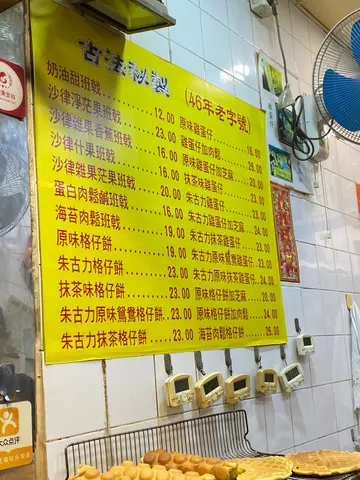 古法秘製 (46年老字號)
奶油甜班戟........12.00 原味雞蛋仔........16.00
沙律淨芒果班戟....23.00 雞蛋仔加肉鬆
沙律雜果香蕉班戟...16.00 原味雞蛋仔加芝麻
沙律什果班戟......16.00 抹茶味雞蛋仔
沙律雜果芒果班戟...20.00 朱古力雞蛋仔
蛋白肉鬆鹹班戟....16.00 朱古力雞蛋仔加芝麻
海苔肉鬆班戟......19.00 朱古力原味鴛鴦雞蛋仔...23.00
原味格仔餅........19.00 朱古力抹茶雞蛋仔....23.00
朱古力格仔餅......23.00 朱古力原味抹茶雞蛋仔..23.00
抹茶味格仔餅......23.00 原味格仔餅加芝麻...20.00
朱古力原味鴛鴦格仔餅...23.00 原味格仔餅加肉鬆...24.00
朱古力抹茶格仔餅...23.00 海苔肉鬆格仔餅....26.00
大众点评